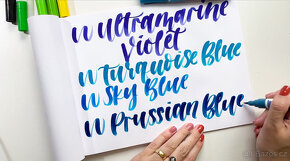 w Ultramarine
Violet
w Turquoise Blue
w Sky Blue
w Prussian Blue